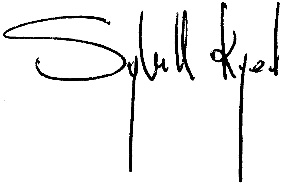 Sybill Kyed